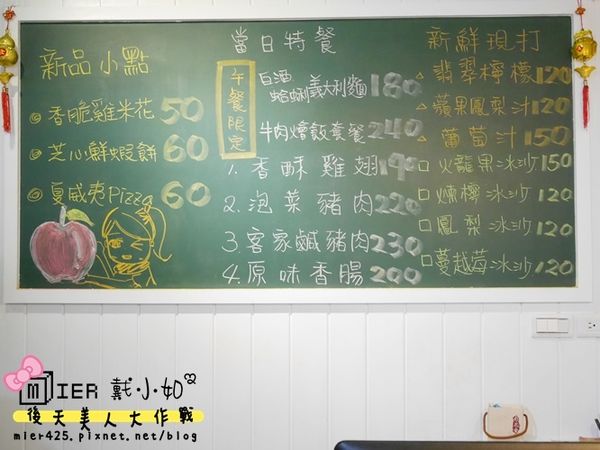 新品小點
香脆雞米花 50
芝心鮮蝦餅 60
夏威夷Pizza 60
當日特餐
午餐限定
白酒
蛤蜊義大利麵 180
牛肉燴飯套餐 240
1. 香酥雞翅 190
2. 泡菜豬肉 220
3. 客家鹹豬肉 230
4. 原味香腸 200
新鮮現打
翡翠檸檬 120
蘋果鳳梨汁 120
葡萄汁 150
火龍果冰沙 150
煉檸冰沙 120
鳳梨冰沙 120
蔓越莓冰沙 120
MIER 戴小如
後天美人大作戰
mier425.pixnet.net/blog